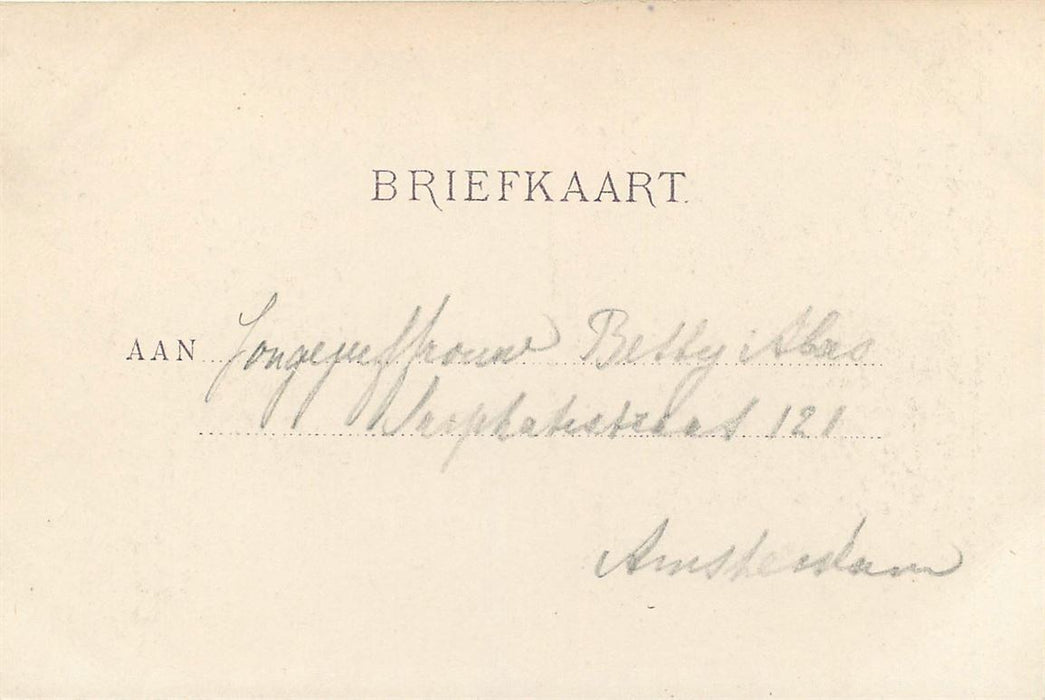 BRIEFKAART.
AAN Jongejuffrouw Betty Abas
Sarphatistraat 121
Amsterdam